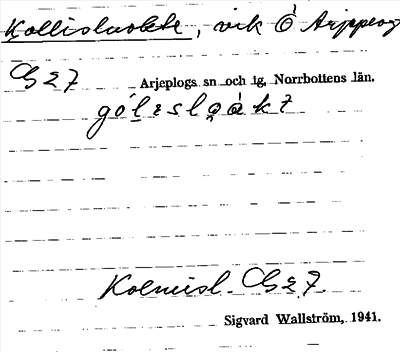 Kollisluokte, vik Ö Arjeplog
G 2 7
Arjeplogs sn och tg, Norrbottens län.
Kolmisl. G 2 7.
Sigvard Wallström, 1941.